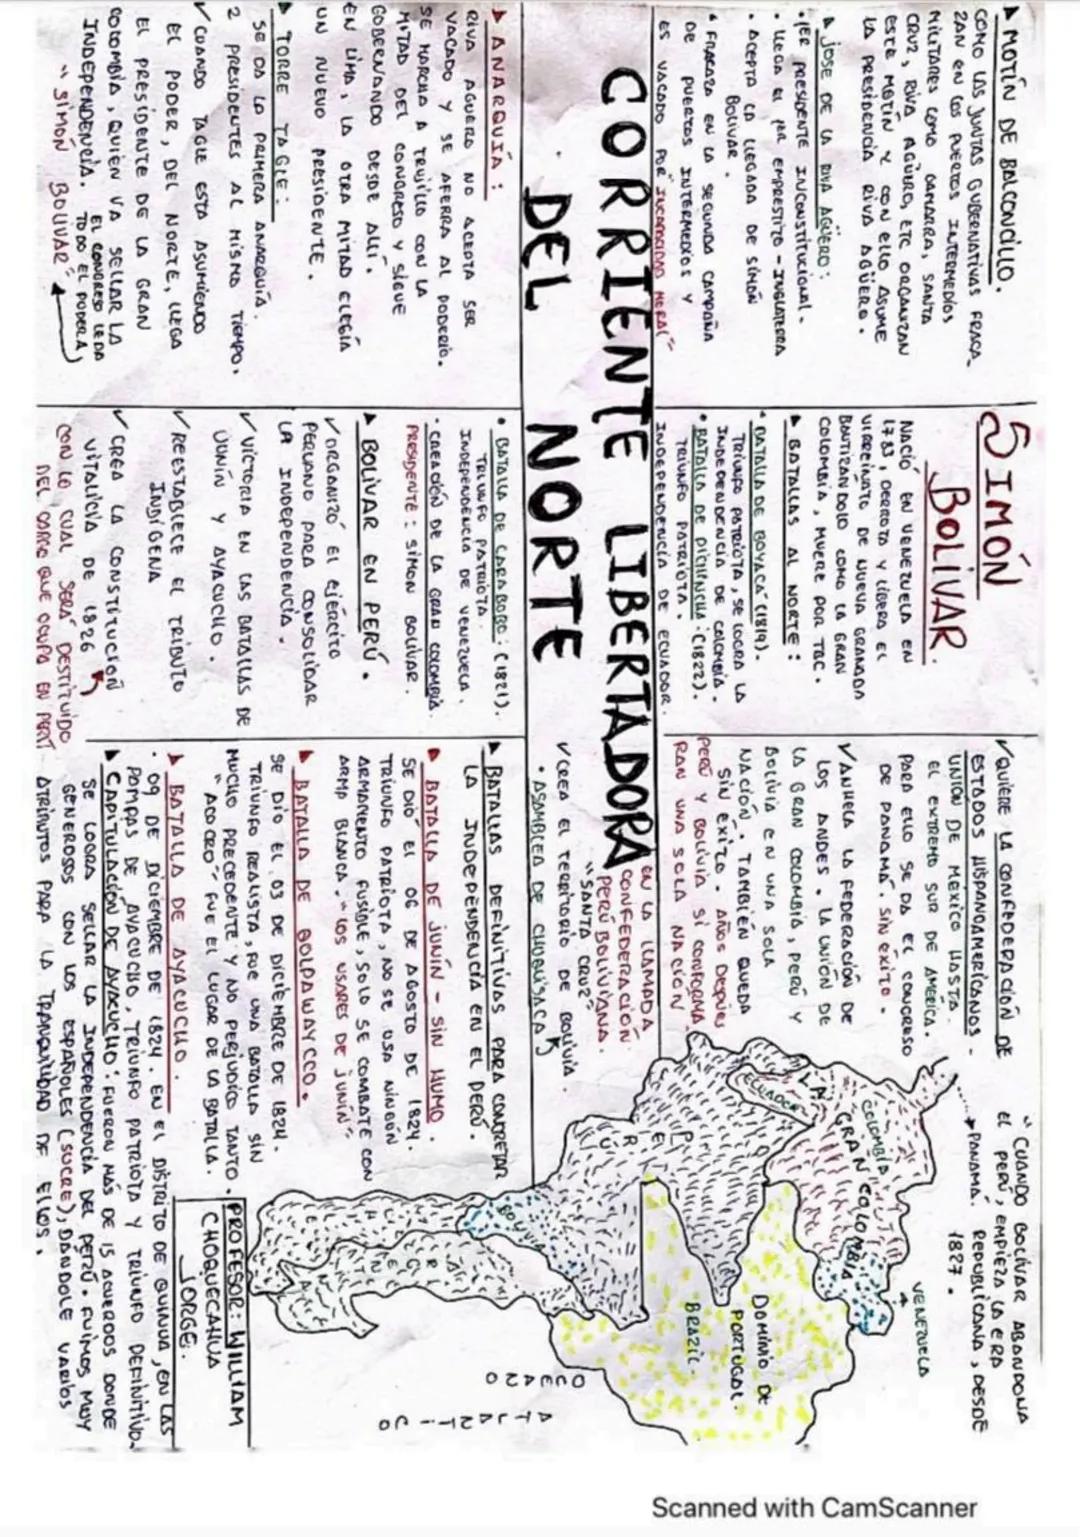 ▲ MOTÍN DE BALCONCILLO.
COMO LAS JUNTAS GUBERNATIVAS FRACA-
ZAN EN LOS PUERTOS INTERMEDIOS
MILITARES COMO GAMARRA, SANTA
CRUZ, RIVA AGÜRO, ETC ORGANIZAN
ESTE MOTÍN Y CON ELLO ASUME
LA PRESIDENCIA RIVA AGÜERO.
▲ JOSE DE LA RIVA AGÜERO:
• 1ER PRESIDENTE INCONSTITUCIONAL.
• LLEGA EL 1ER EMPRESTITO - INGLATERRA
• ACEPTA LA LLEGADA DE SIMÓN
BOLIVAR.
• FRACAZA EN LA SEGUNDA CAMPAÑA
DE PUERTOS INTERMEDIOS Y
ES VACADO POR "INCAPACIDAD MORAL"
CORRIENTE LIBERTADORA
DEL NORTE
▲ ANARQUÍA:
RIVA AGUERO NO ACEPTA SER
VACADO Y SE AFERRA AL PODERÍO.
SE MARCHA A TRUJILLO CON LA
MITAD DEL CONGRESO Y SIGUE
GOBERNANDO DESDE ALLÍ.
EN LIMA, LA OTRA MITAD ELEGÍA
UN NUEVO PRESIDENTE.
▲ TORRE TAGLE:
SE DA LA PRIMERA ANARQUÍA.
2 PRESIDENTES AL MISMO TIEMPO.
✓ CUANDO TAGLE ESTA ASUMIENDO
EL PODER, DEL NORTE, LLEGA
EL PRESIDENTE DE LA GRAN
COLOMBIA, QUIÉN VA SELLAR LA
INDEPENDENCIA. EL CONGRESO LE DA
TODO EL PODER A
"SIMÓN BOLIVAR"
SIMÓN
BOLIVAR.
NACIÓ EN VENEZUELA EN
1783, DERROTA Y LIBERA EL
VIRREINATO DE NUEVA GRANADA
BAUTIZANDOLO COMO LA GRAN
COLOMBIA, MUERE POR TBC.
▲ BATALLAS AL NORTE:
• BATALLA DE BOYACÁ (1819).
TRIUNFO PATRIOTA, SE LOGRA LA
INDEPENDENCIA DE COLOMBIA.
• BATALLA DE PICHINCHA: (1822).
TRIUNFO PATRIOTA.
INDEPENDENCIA DE ECUADOR.
• BATALLA DE CARABOBO: (1821).
TRIUNFO PATRIOTA
INDEPENDENCIA DE VENEZUELA.
• CREACIÓN DE LA GRAN COLOMBIA.
PRESIDENTE: SIMON BOLIVAR.
▲ BOLÍVAR EN PERÚ.
✓ ORGANIZÓ EL EJERCITO
PERUANO PARA CONSOLIDAR
LA INDEPENDENCIA.
✓ VICTORIA EN LAS BATALLAS DE
JUNÍN Y AYACUCHO.
✓ REESTABLECE EL TRIBUTO
INDÍGENA
✓ CREA LA CONSTITUCIÓN
VITALICIA DE 1826
CON LO CUAL SERÁ DESTITUIDO
DEL CARGO QUE OCUPA EN PERÚ
✓ QUIERE LA CONFEDERACIÓN DE
ESTADOS HISPANOAMERICANOS -
UNIÓN DE MÉXICO HASTA
EL EXTREMO SUR DE AMÉRICA.
PARA ELLO SE DA EL CONGRESO
DE PANAMÁ. SIN ÉXITO.
✓ ANHELA LA FEDERACIÓN DE
LOS ANDES. LA UNIÓN DE
LA GRAN COLOMBIA, PERÚ Y
BOLIVIA EN UNA SOLA
NACIÓN. TAMBIÉN QUEDA
SIN ÉXITO. AÑOS DESPUES
PERÚ Y BOLIVIA SÍ CONFORMA
RAN UNA SOLA NACIÓN
EN LA LLAMADA
CONFEDERACIÓN
PERÚ BOLIVIANA.
"SANTA CRUZ"
✓ CREA EL TERRITORIO DE BOLIVIA.
• ASAMBLEA DE CHUQUISACA
▲ BATALLAS DEFINITIVAS PARA CONCRETAR
LA INDEPENDENCIA EN EL PERÚ.
▲ BATALLA DE JUNÍN - SIN HUMO.
SE DIÓ EL 06 DE AGOSTO DE 1824.
TRIUNFO PATRIOTA, NO SE USA NINGÚN
ARMAMENTO FUSIBLE, SOLO SE COMBATE CON
ARMA BLANCA. "LOS USARES DE JUNÍN"
▲ BATALLA DE COLPAWAYCCO.
SE DIO EL 03 DE DICIEMBRE DE 1824.
TRIUNFO REALISTA, FUE UNA BATALLA SIN
MUCHO PRECEDENTE Y NO PERJUDICÓ TANTO.
"ACOCRO" FUE EL LUGAR DE LA BATALLA.
▲ BATALLA DE AYACUCHO.
• 09 DE DICIEMBRE DE 1824. EN EL DISTRITO DE QUINUA, EN LAS
POMPAS DE AYACUCHO, TRIUNFO PATRIOTA Y TRIUNFO DEFINITIVO.
▲ CAPITULACIÓN DE AYACUCHO: FUERON MÁS DE 15 ACUERDOS DONDE
SE LOGRA SELLAR LA INDEPENDENCIA DEL PERÚ. FUIMOS MUY
GENEROSOS CON LOS ESPAÑOLES (SUCRE), DANDOLE VARIOS
ATRIBUTOS PARA LA TRANQUILIDAD DE ELLOS.
"CUANDO BOLÍVAR ABANDONA
EL PERÚ, EMPIEZA LA ERA
REPUBLICANA, DESDE
1827.
PANAMÁ.
VENEZUELA
COLOMBIA
LA GRAN COLOMBIA
ECUADOR
PERÚ
BOLIVIA
DOMINIO DE
PORTUGAL.
BRAZIL.
OCEANO
ATLANTICO
PROFESOR: WILLIAM
CHOQUECAHUA
JORGE.
Scanned with CamScanner